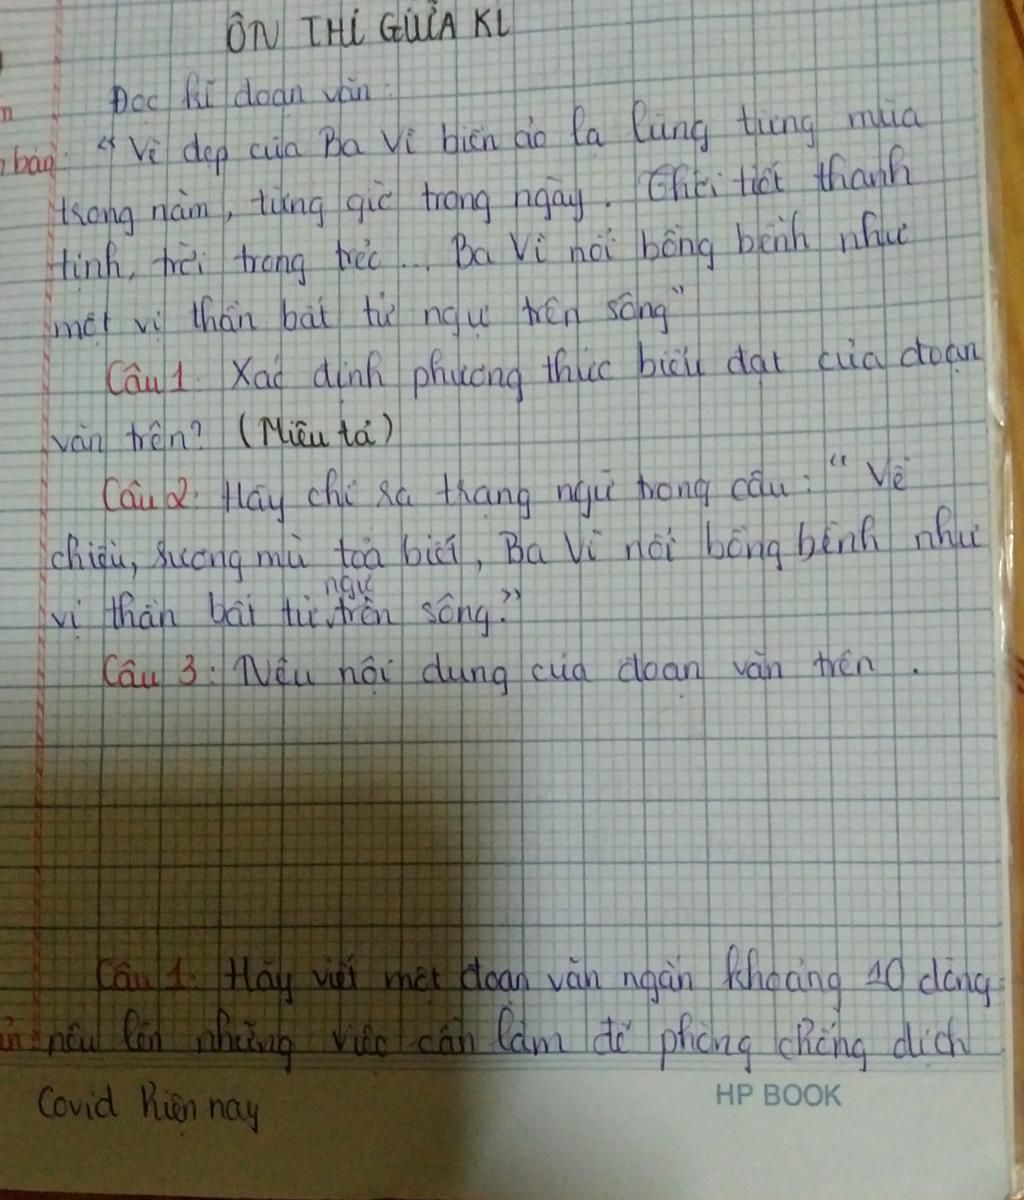 ÔN THI GIỮA KI
Đọc kĩ đoạn văn:
bản "Vẻ đẹp của Ba Vì biến ảo lạ lùng từng mùa
trong năm, từng giờ trong ngày. Thời tiết thanh
tịnh, trời trong trẻo... Ba Vì nổi bồng bềnh như
một vị thần bất tử ngự trên sông"
Câu 1: Xác định phương thức biểu đạt của đoạn
văn trên? (Miêu tả)
Câu 2: Hãy chỉ ra trạng ngữ trong câu: "Về
chiều, sương mù toả biếc, Ba Vì nổi bồng bềnh như
ngự
vị thần bất tử trên sông."
Câu 3: Nêu nội dung của đoạn văn trên.
Câu 1: Hãy viết một đoạn văn ngắn khoảng 10 dòng
nêu lên những việc cần làm để phòng chống dịch
Covid hiện nay
HP BOOK